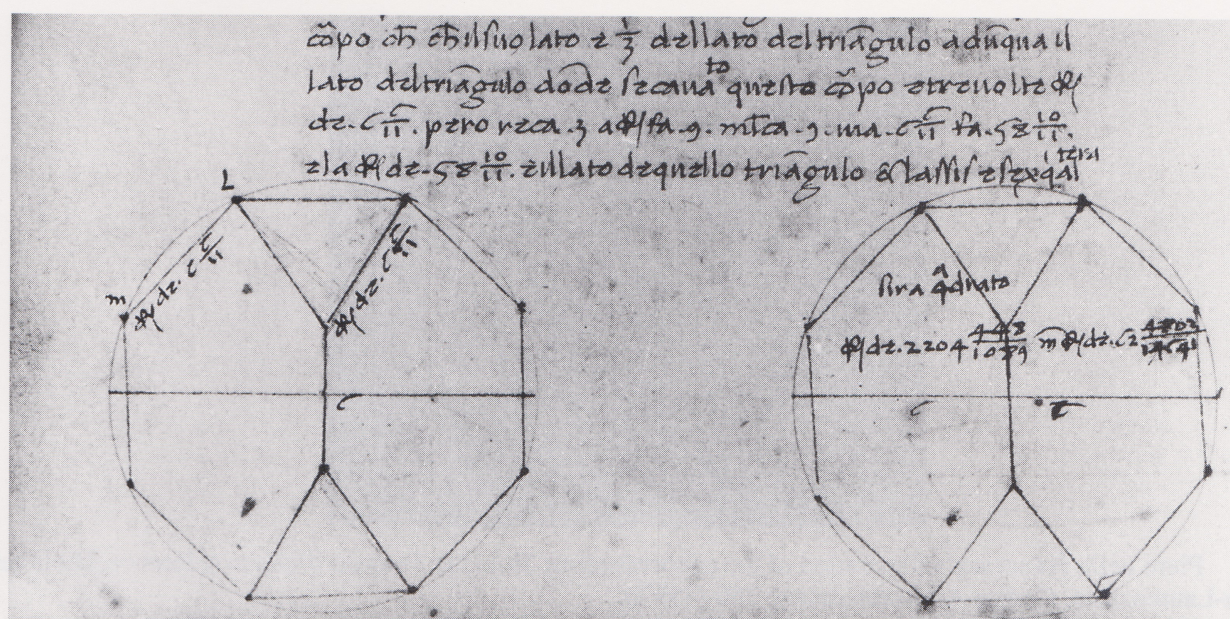 cõpo ch̄ ch̄ il suo lato e 1/3 dellato deltriãgulo adũqua il
lato deltriãgulo dõde secaua to questo cõpo etreuolte ℞
de. 6 6/11. pero reca .3 a ℞ fa .9. m̄ca .9. uia .6 6/11 fa .58 10/11.
ela ℞ de .58 10/11. eillato dequello triãgulo & lassis
L
m
℞ de. 6 6/11
℞ de. 6 6/11
sira q̃drato
℞ de. 2204 448/1089 m̃ ℞ de. 62
c
c
t